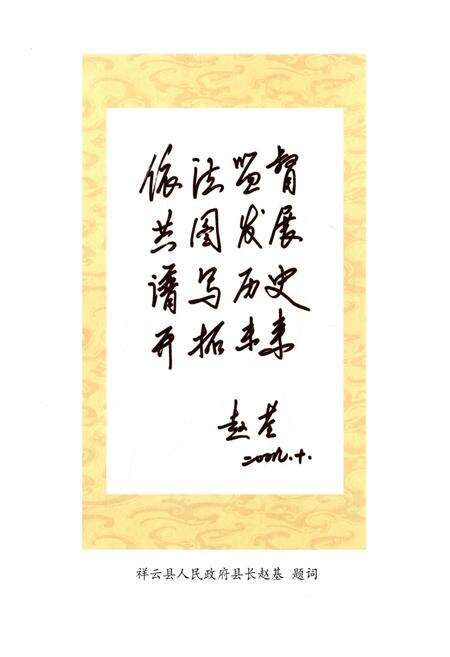 依法监督
共图发展
谱写历史
开拓未来
赵基
祥云县人民政府县长赵基 题词